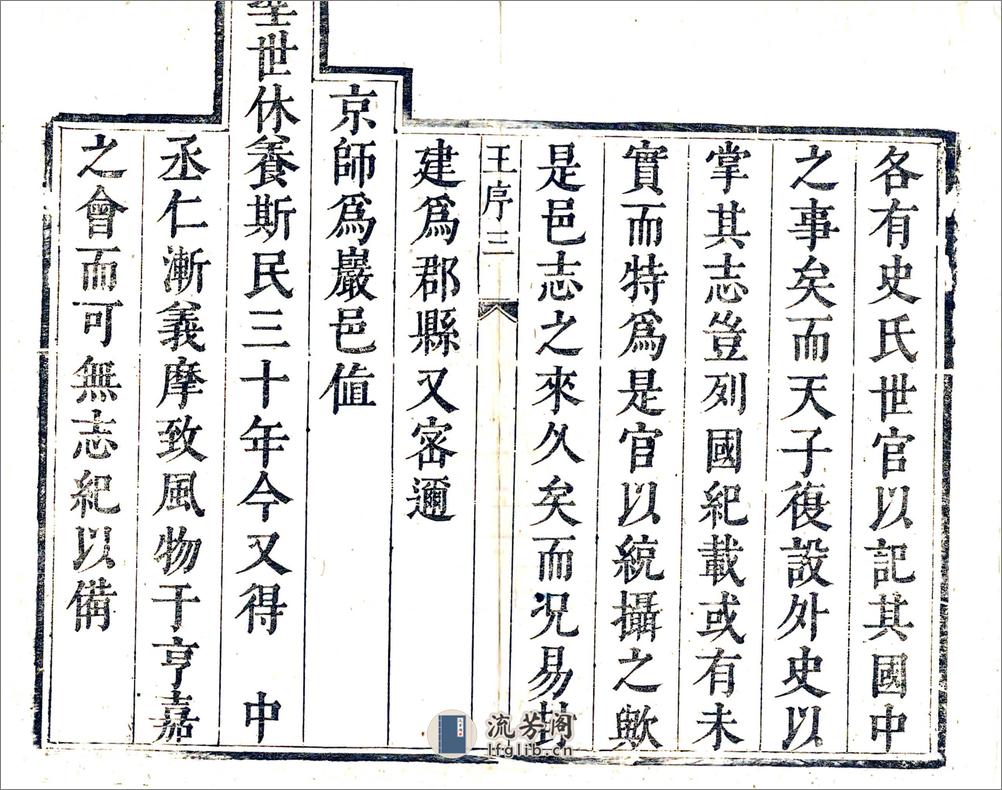 各有史氏世官以記其國中
之事矣而天子復設外史以
掌其志豈列國紀載或有未
實而特爲是官以統攝之歟
是邑志之來久矣而况易封
王序三
建爲郡縣又密邇
京師爲巖邑值
聖世休養斯民三十年今又得 中
丞仁漸義摩致風物于亨嘉
之會而可無志紀以備
流芳阁
lfglib.cn